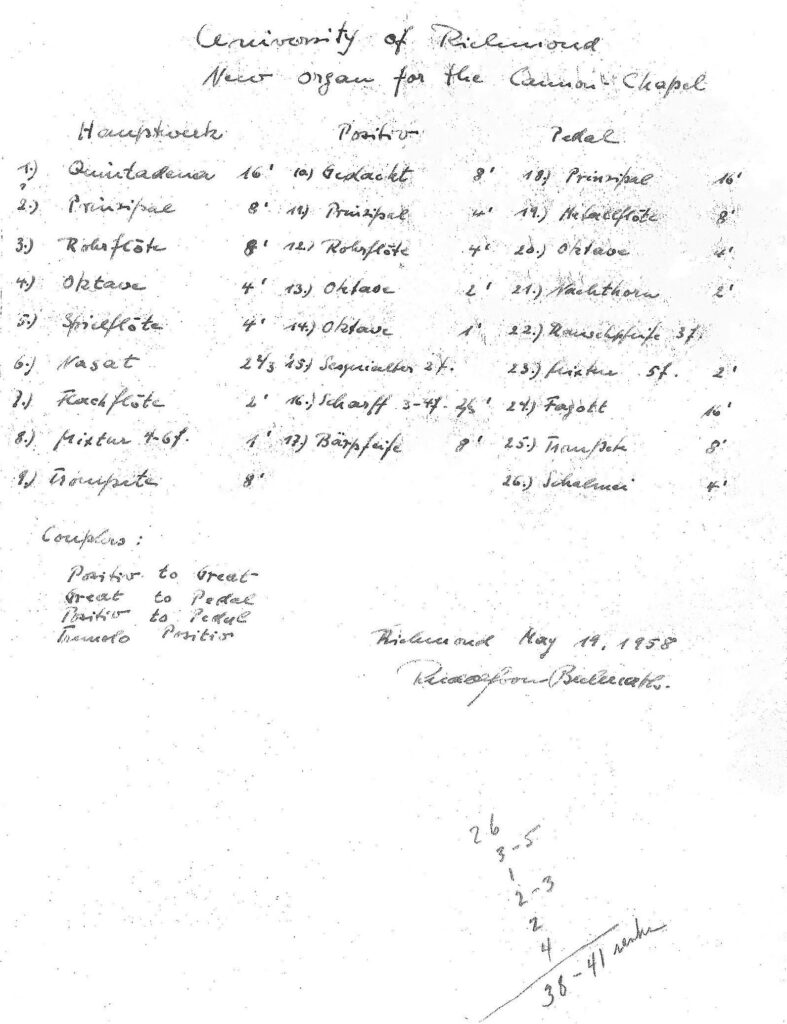 University of Richmond
New organ for the Cannon Chapel
Hauptwerk Positiv Pedal
1.) Quintadena 16' 10) Gedackt 8' 18.) Prinzipal 16'
2.) Prinzipal 8' 11.) Prinzipal 4' 19.) Metallflöte 8'
3.) Rohrflöte 8' 12.) Rohrflöte 4' 20.) Oktave 4'
4.) Oktave 4' 13.) Oktave 2' 21.) Nachthorn 2'
5.) Spielflöte 4' 14.) Oktave 1' 22.) Rauschpfeife 3f.
6.) Nasat 2 2/3 15.) Sesquialter 2f. 23.) Mixtur 5f. 2'
7.) Flachflöte 2' 16.) Scharff 3-4f. 2/3' 24.) Fagott 16'
8.) Mixtur 4-6f. 1' 17.) Bärpfeife 8' 25.) Trompete 8'
9.) Trompete 8' 26.) Schalmei 4'
Couplers:
Positiv to Great
Great to Pedal
Positiv to Pedal
Tremolo Positiv
Richmond May 19, 1958
Rudolf von Beckerath.
26
3-5
1
2-3
2
4
38-41 ranks